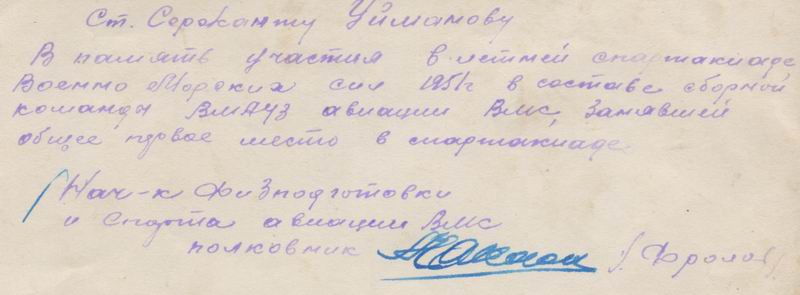 Ст. Сержанту Уйманову
В память участия в летней спартакиаде
Военно Морских сил 1951г в составе сборной
команды ВМАУЗ авиации ВМС, занявшей
общее первое место в спартакиаде.
Нач-к Физподготовки
и спорта авиации ВМС
полковник /. Фролов/